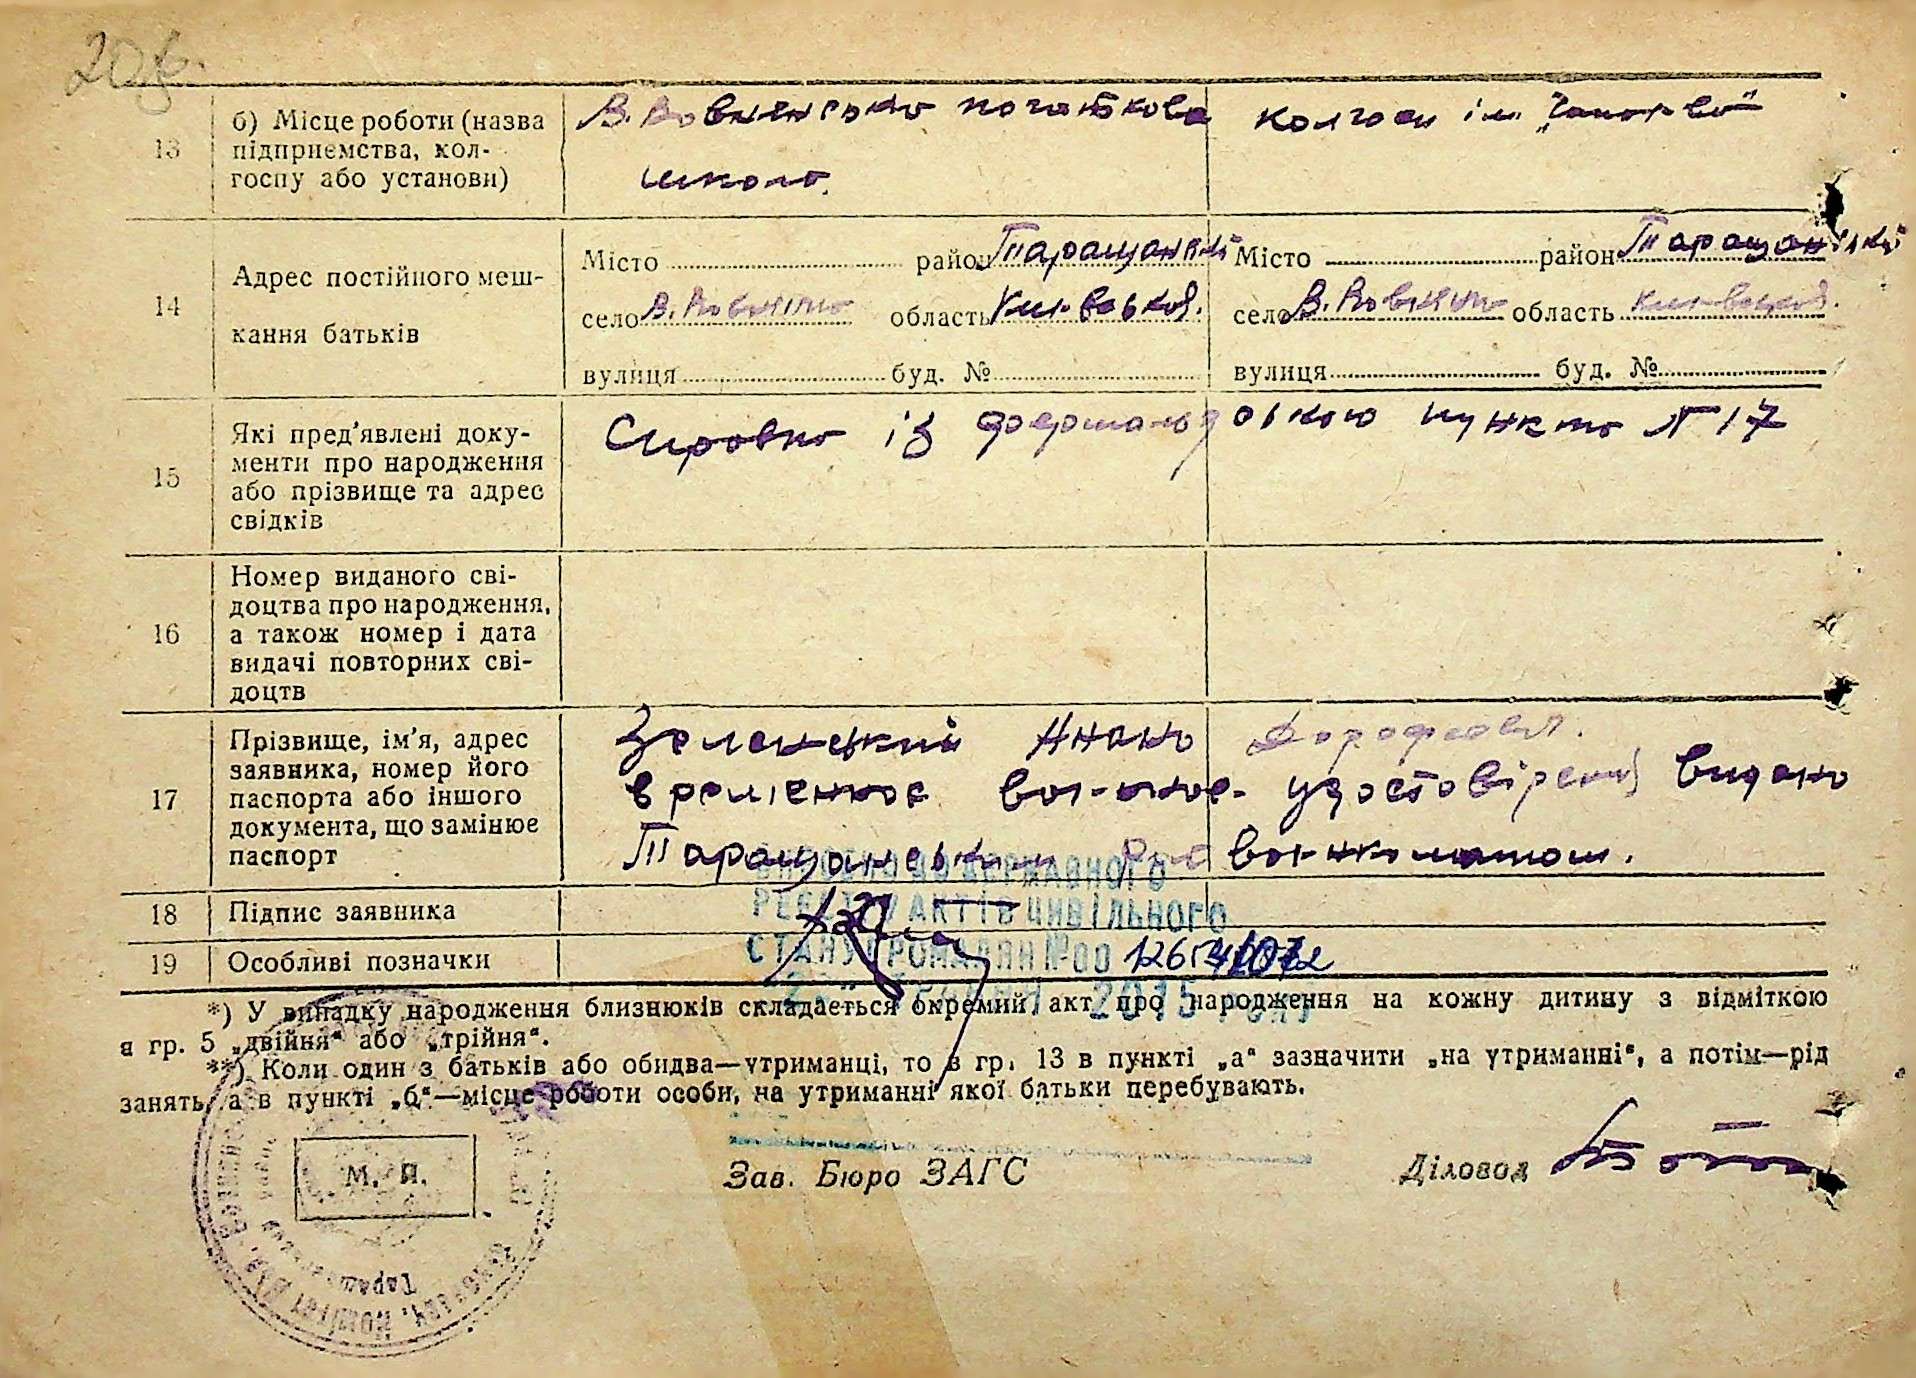 20
13
б) Місце роботи (назва
підприємства, кол-
госпу або установи)
В. Вовнянська початкова
школа.
колгосп ім.
14
Адрес постійного меш-
кання батьків
Місто район Таращанський
село В. Вовнянка область Київської.
вулиця буд. №
Місто район Таращанський
село В. Вовнянка область Київської.
вулиця буд. №
15
Які пред'явлені доку-
менти про народження
або прізвище та адрес
свідків
Справка із пункта № 17
16
Номер виданого сві-
доцтва про народження,
а також номер і дата
видачі повторних сві-
доцтв
17
Прізвище, ім'я, адрес
заявника, номер його
паспорта або іншого
документа, що замінює
паспорт
Дорофеєвя.
видано
Таращанським військоматом.
18
Підпис заявника
19
Особливі позначки
ДЕРЖАВНОГО
РЕЄСТРУ АКТІВ ЦИВІЛЬНОГО
СТАНУ ГРОМАДЯН №00
2015 року
*) У випадку народження близнюків складається окремий акт про народження на кожну дитину з відміткою
в гр. 5 „двійня“ або „трійня“.
**) Коли один з батьків або обидва—утриманці, то в гр. 13 в пункті „а“ зазначити „на утриманні“, а потім—рід
занять, а в пункті „б“—місце роботи особи, на утриманні якої батьки перебувають.
М. П.
Зав. Бюро ЗАГС
Діловод